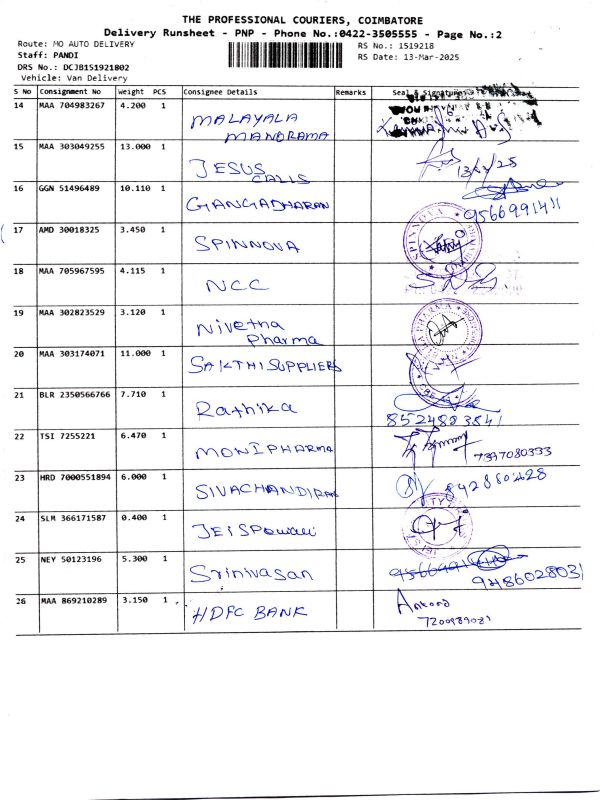 THE PROFESSIONAL COURIERS, COIMBATORE
Delivery Runsheet - PNP - Phone No.:0422-3505555 - Page No.:2
Route: MO AUTO DELIVERY
RS No.: 1519218
Staff: PANDI
RS Date: 13-Mar-2025
DRS No.: DCJB151921802
Vehicle: Van Delivery
S No Consignment No Weight PCS Consignee Details Remarks Seal & Signature
14 MAA 704983267 4.200 1 MALAYALA
MANORAMA
15 MAA 303049255 13.000 1 JESUS
CALLS
16 GGN 51496489 10.110 1 GANGADHARAN 9566991411
17 AMD 30018325 3.450 1 SPINNOVA SPINNOVA
18 MAA 705967595 4.115 1 NCC
19 MAA 302823529 3.120 1 Nivetha
Pharma
20 MAA 303174071 11.000 1 SAKTHI SUPPLIERS
21 BLR 2350566766 7.710 1 Rathika
8524823541
22 TSI 7255221 6.470 1 MONIPHARMA 7397080333
23 HRD 7000551894 6.000 1 SIVACHANDIRAN
24 SLM 366171587 0.400 1
25 NEY 50123196 5.300 1 Srinivasan
9486028031
26 MAA 869210289 3.150 1 HDFC BANK
7200989021